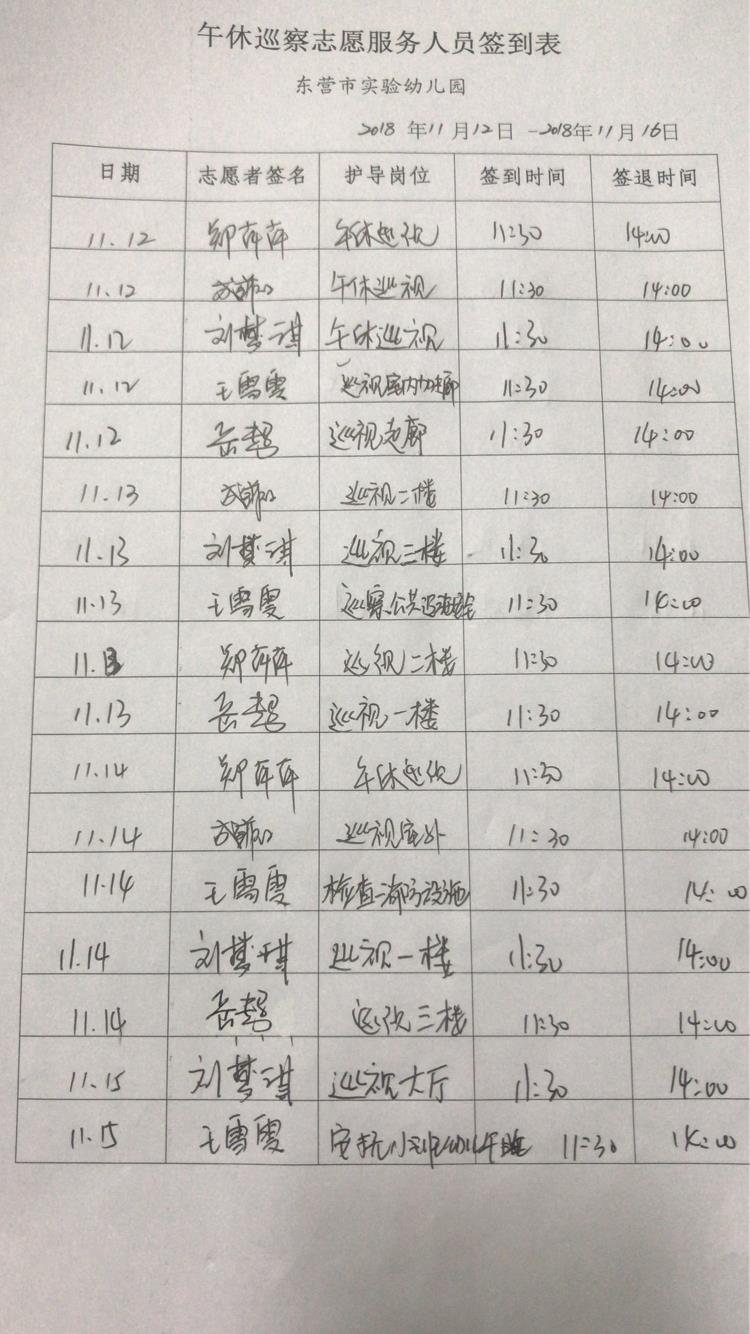 午休巡察志愿服务人员签到表
东营市实验幼儿园
2018 年11月12日 -2018年11月16日
日期 志愿者签名 护导岗位 签到时间 签退时间
11.12 郑萍萍 午休巡视 11:30 14:00
11.12 午休巡视 11:30 14:00
11.12 刘梦琪 午休巡视 11:30 14:00
11.12 王雪雯 巡视室内 11:30 14:00
11.12 岳 巡视走廊 11:30 14:00
11.13 巡视二楼 11:30 14:00
11.13 刘梦琪 巡视三楼 11:30 14:00
11.13 王雪雯 巡察公共设施 11:30 14:00
11.13 郑萍萍 巡视二楼 11:30 14:00
11.13 岳 巡视一楼 11:30 14:00
11.14 郑萍萍 午休巡视 11:30 14:00
11.14 巡视室外 11:30 14:00
11.14 王雪雯 检查消防设施 11:30 14:00
11.14 刘梦琪 巡视一楼 11:30 14:00
11.14 岳 巡视三楼 11:30 14:00
11.15 刘梦琪 巡视大厅 11:30 14:00
11.15 王雪雯 安抚小班幼儿午睡 11:30 14:00